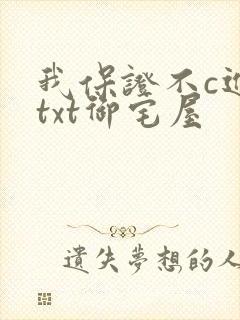 我保證不c近
txt御宅屋
遺失夢想的人